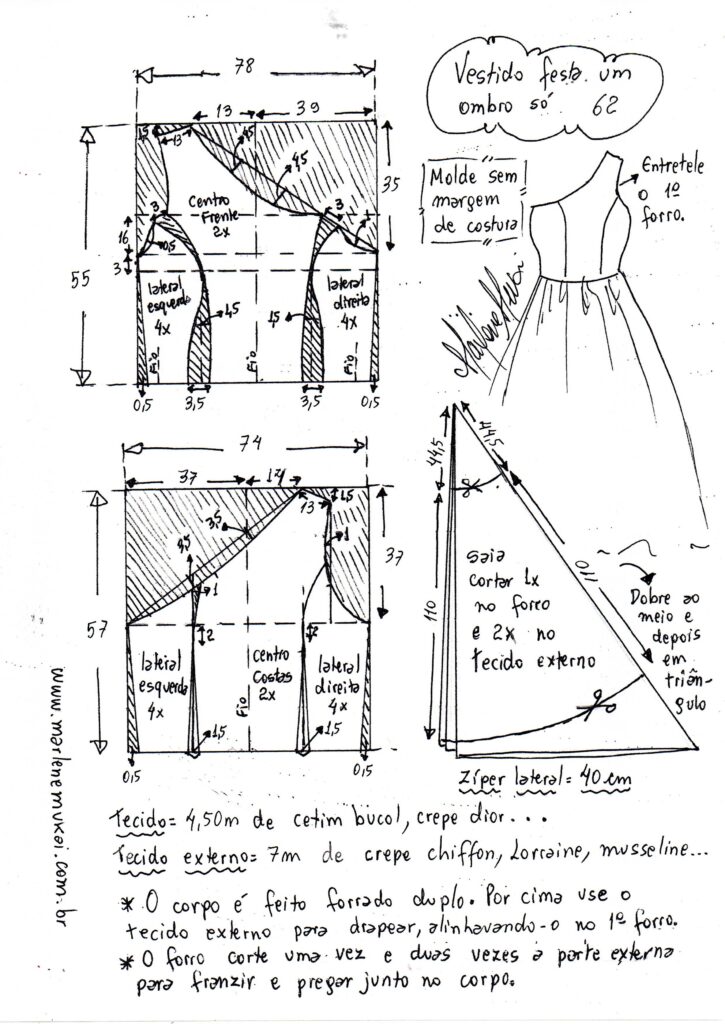 78
Vestido festa um
ombro só. 62
13
39
1,5
13
4,5
4,5
35
Molde sem
margem
de costura
Entretele
o 1º
forro.
Centro
Frente
2x
3
3
16
0,5
3
55
lateral
esquerda
4x
lateral
direita
4x
4,5
1,5
Fio
Fio
Fio
0,5
3,5
3,5
0,5
74
44,5
44,5
37
14
13
1,5
3,5
3,5
1
1
37
57
2
2
110
110
saia
cortar 1x
no forro
e 2x no
tecido externo
Dobre ao
meio e
depois
em
triân-
gulo
lateral
esquerda
4x
Centro
Costas
2x
lateral
direita
4x
Fio
1,5
1,5
0,5
0,5
Zíper lateral = 40 cm
www.marlenemukai.com.br
Tecido = 4,50m de cetim bucol, crepe dior...
Tecido externo = 7m de crepe chiffon, Lorraine, musseline...
* O corpo é feito forrado duplo. Por cima use o
tecido externo para drapear, alinhavando-o no 1º forro.
* O forro corte uma vez e duas vezes a parte externa
para franzir e pregar junto no corpo.